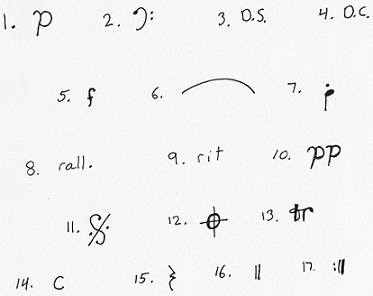 1. p 2. 𝄢 3. D.S. 4. D.C.
5. f 6. ⌒ 7. ♩̇
8. rall. 9. rit 10. pp
11. 𝄋 12. 𝄌 13. tr
14. C 15. 𝄽 16. || 17. :||